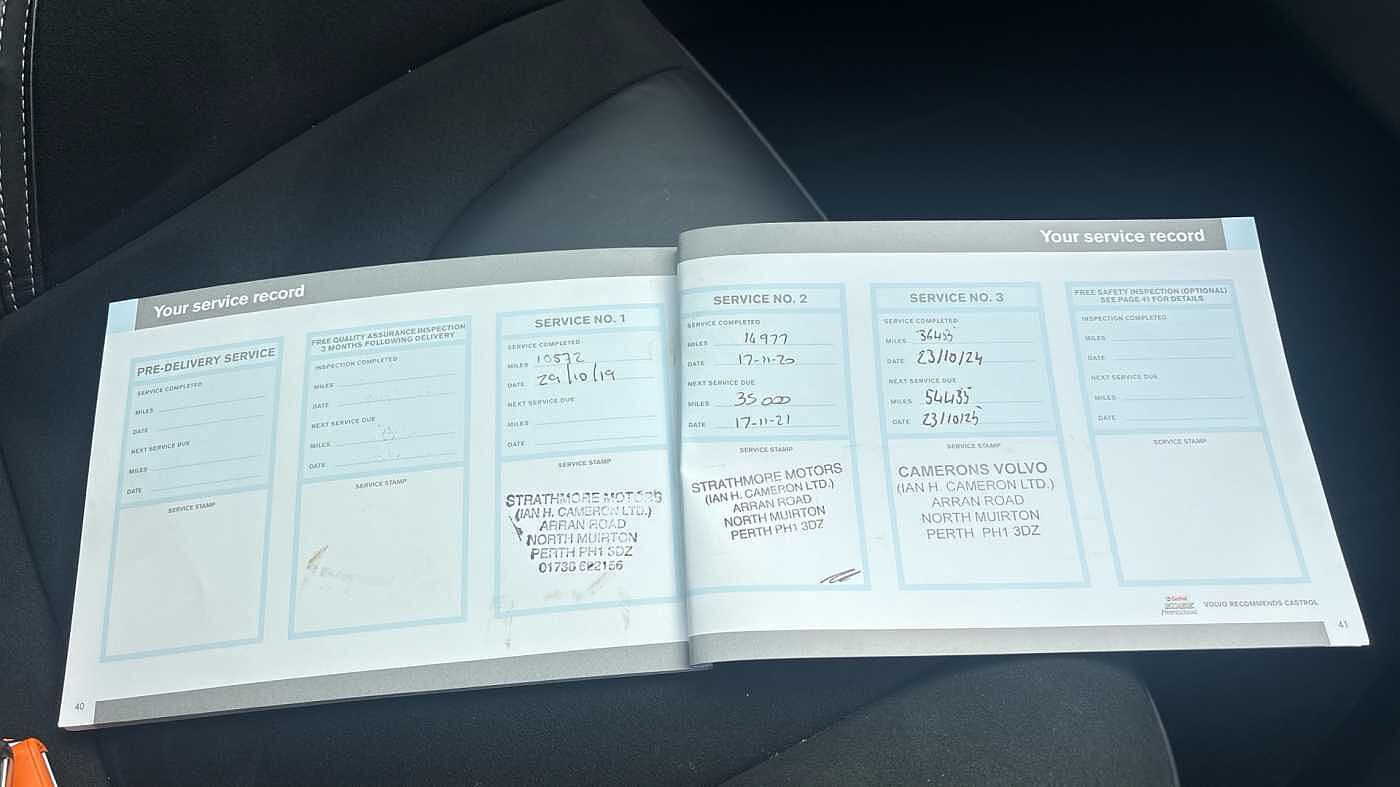 Your service record
PRE-DELIVERY SERVICE
SERVICE COMPLETED
MILES
DATE
NEXT SERVICE DUE
MILES
DATE
SERVICE STAMP
FREE QUALITY ASSURANCE INSPECTION
3 MONTHS FOLLOWING DELIVERY
INSPECTION COMPLETED
MILES
DATE
NEXT SERVICE DUE
MILES
DATE
SERVICE STAMP
SERVICE NO. 1
SERVICE COMPLETED
MILES 10572
DATE 29/10/19
NEXT SERVICE DUE
MILES
DATE
SERVICE STAMP
STRATHMORE MOTORS
(IAN H. CAMERON LTD.)
ARRAN ROAD
NORTH MUIRTON
PERTH PH1 3DZ
40
Your service record
SERVICE NO. 2
SERVICE COMPLETED
MILES 14977
DATE 17-11-20
NEXT SERVICE DUE
MILES 35000
DATE 17-11-21
SERVICE STAMP
STRATHMORE MOTORS
(IAN H. CAMERON LTD.)
ARRAN ROAD
NORTH MUIRTON
PERTH PH1 3DZ
SERVICE NO. 3
SERVICE COMPLETED
MILES 36435
DATE 23/10/24
NEXT SERVICE DUE
MILES 54435
DATE 23/10/25
SERVICE STAMP
CAMERONS VOLVO
(IAN H. CAMERON LTD.)
ARRAN ROAD
NORTH MUIRTON
PERTH PH1 3DZ
FREE SAFETY INSPECTION (OPTIONAL)
SEE PAGE 41 FOR DETAILS
INSPECTION COMPLETED
MILES
DATE
NEXT SERVICE DUE
MILES
DATE
SERVICE STAMP
Castrol
VOLVO RECOMMENDS CASTROL
41